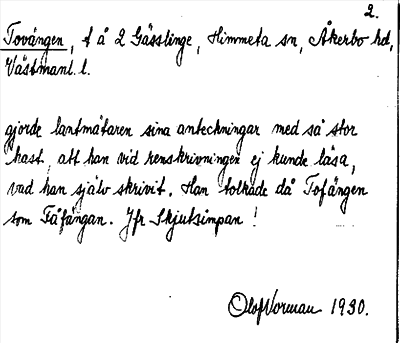 2.
Tovängen, t å 2 Gässlinge, Himmeta sn, Åkerbo hd,
Västmanl. l.
gjorde lantmätaren sina anteckningar med så stor
hast, att han vid renskrivningen ej kunde läsa,
vad han själv skrivit. Han tolkade då Tofängen
som Fåfängan. Jfr Skjutsimpan!
Olof Norman 1930.